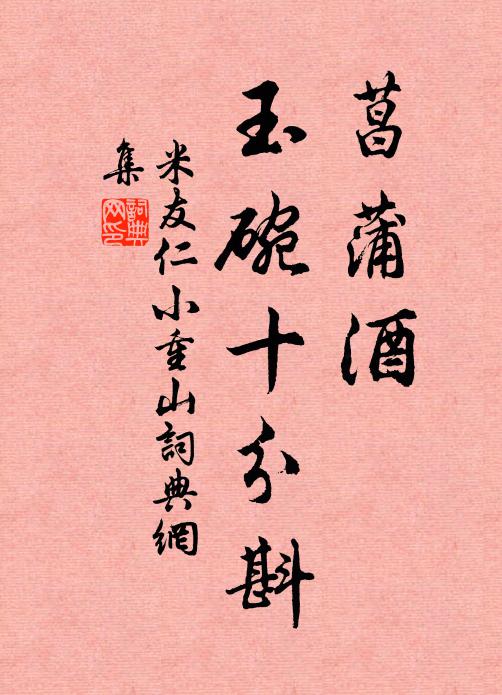 菖蒲酒
玉碗十分斟
米友仁小重山詞典網
集
詞典網印